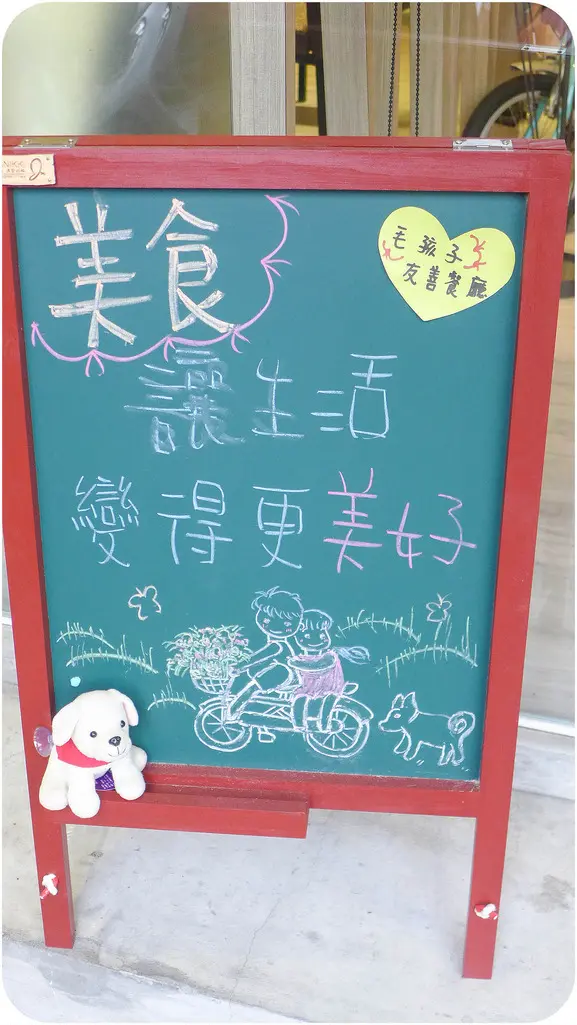 美食
毛孩子
友善餐廳
讓生活
變得更美好